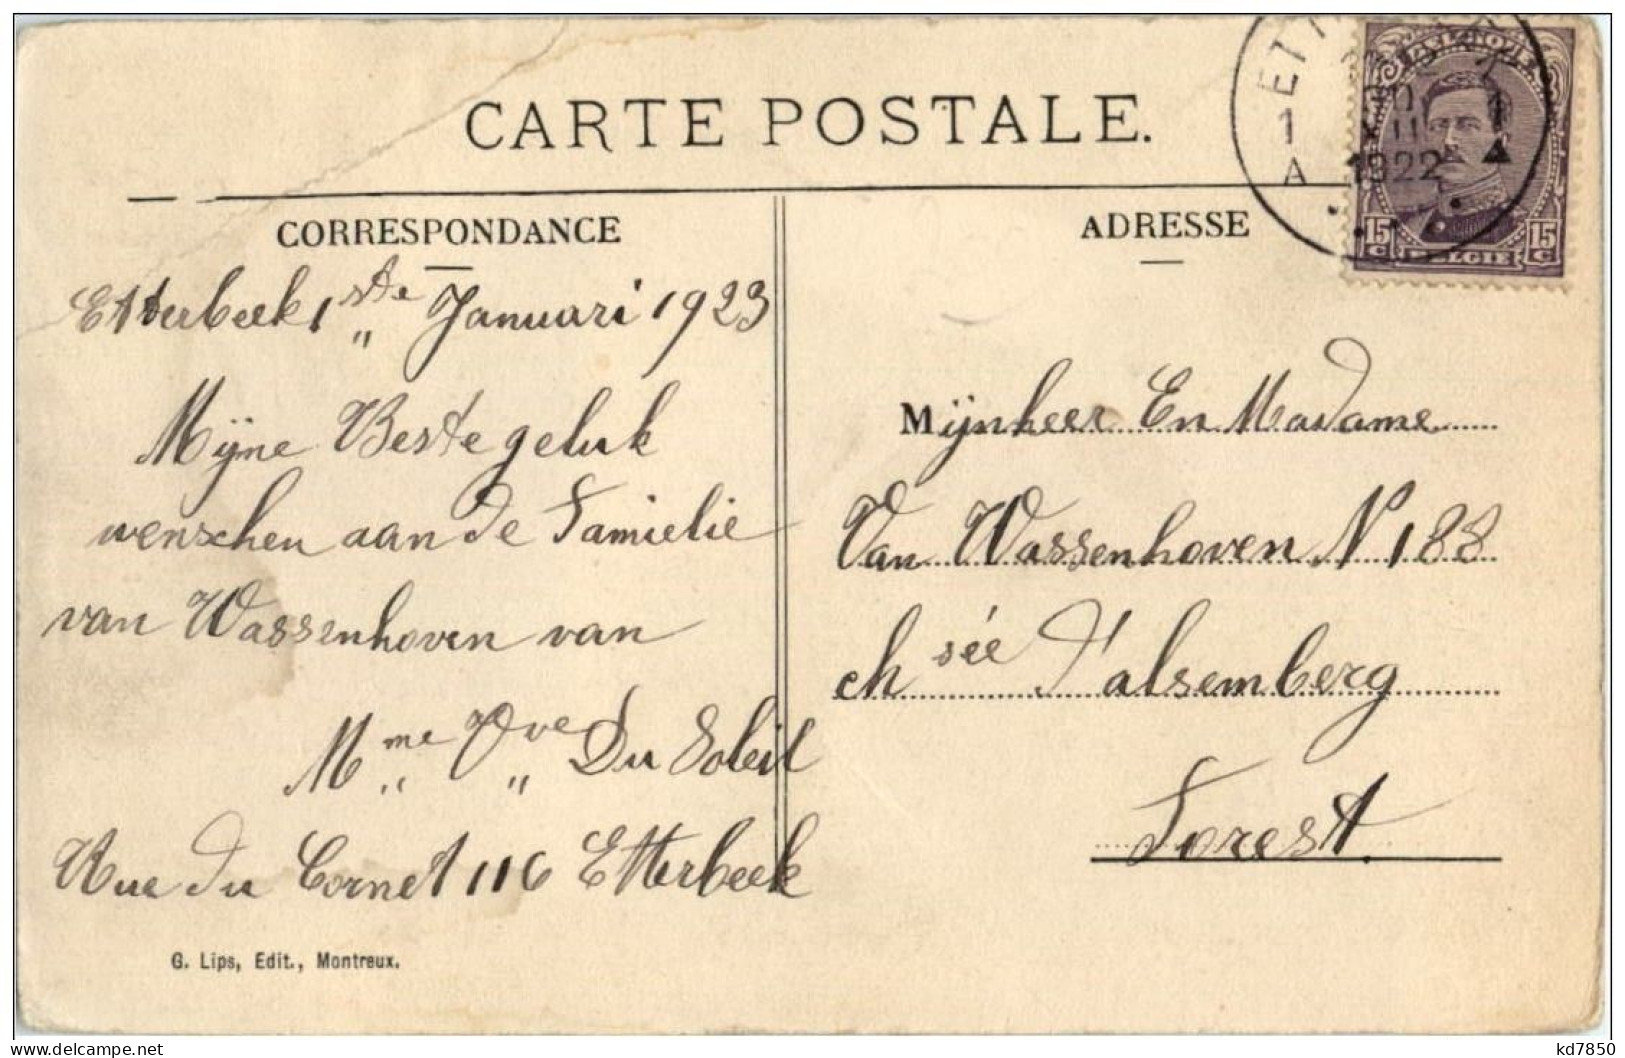 CARTE POSTALE.
CORRESPONDANCE
Etterbeek 1ste Januari 1923
Mijne Beste geluk
wenschen aan de Familie
van Wassenhoven van
Mme Vve Du Soleil
Rue du Cornet 116 Etterbeek
G. Lips, Edit., Montreux.
ADRESSE
1
A
1922
15 C
BELGIE
15 C
Mijnheer En Madame
Van Wassenhoven N 188
chsée d'alsemberg
Forest.
delcampe.net
kd7850